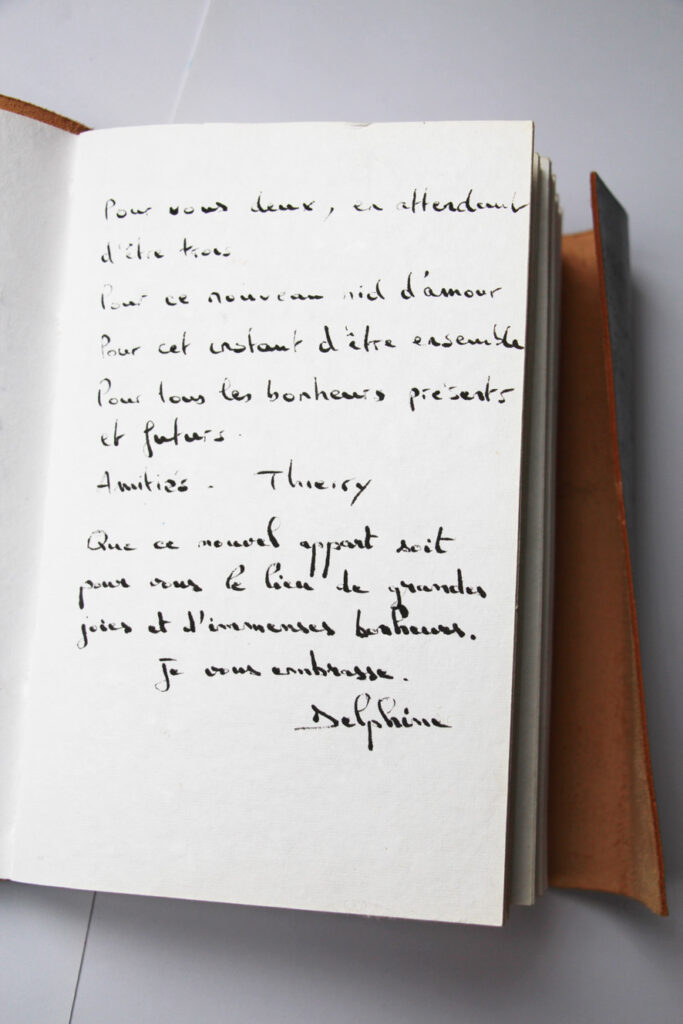 Pour vous deux, en attendant
d'être trois
Pour ce nouveau nid d'amour
Pour cet instant d'être ensemble
Pour tous les bonheurs présents
et futurs.
Amitiés. Thierry
Que ce nouvel appart soit
pour vous le lieu de grandes
joies et d'immenses bonheurs.
Je vous embrasse.
Delphine